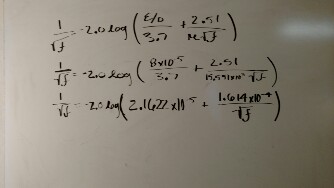 1/√f = -2.0 log ( (ε/D)/3.7 + 2.51/(Re √f) )
1/√f = -2.0 log ( 8x10⁻⁵/3.7 + 2.51/( √f) )
1/√f = -2.0 log ( 2.1622 x10⁻⁵ + 1.614 x10⁻⁴/√f )